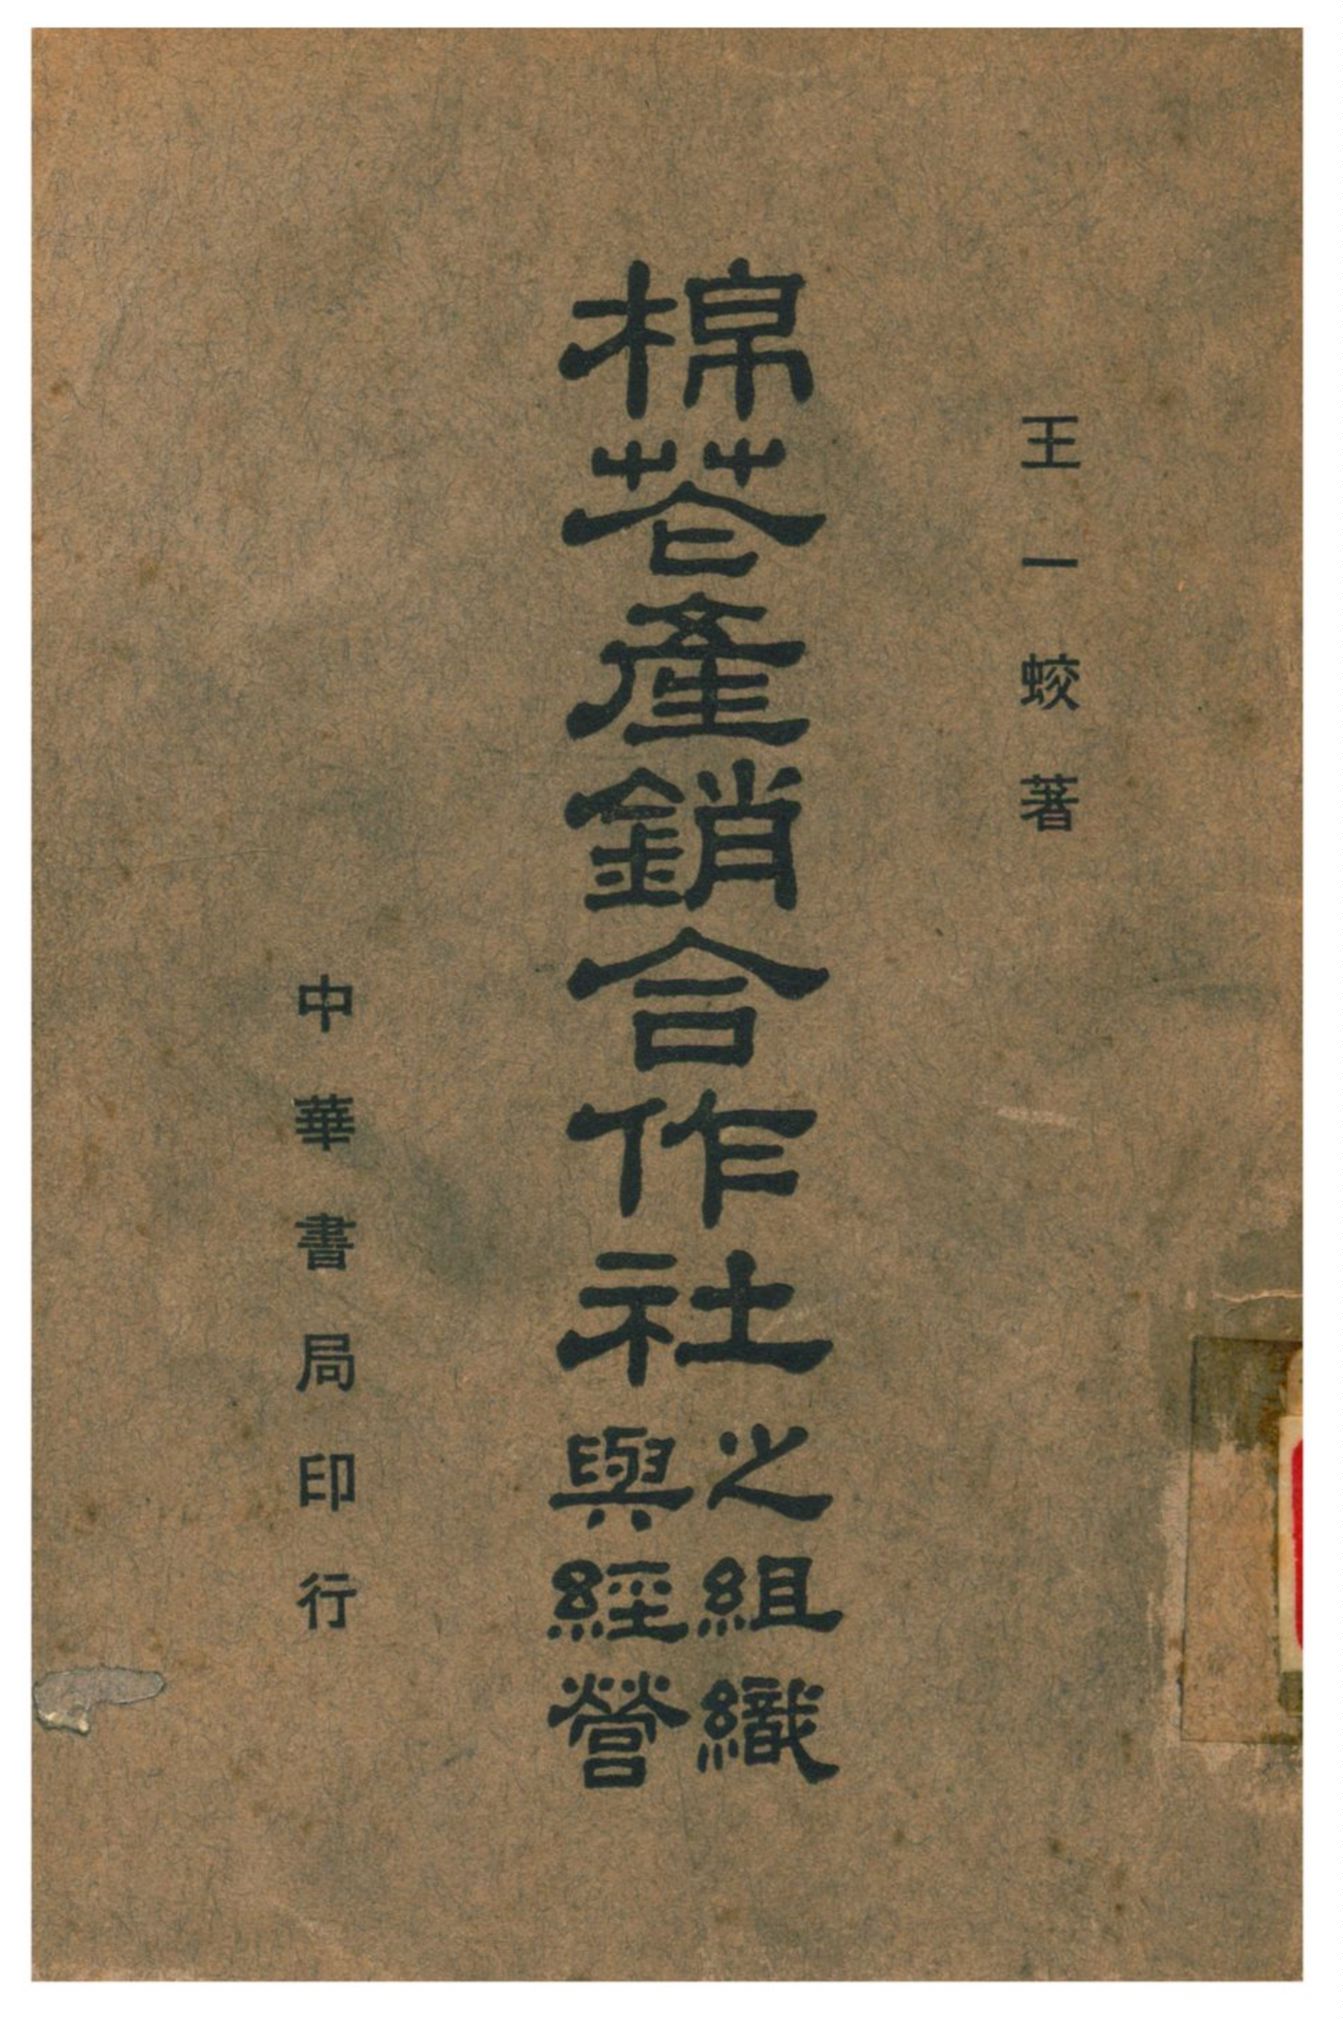 王一蛟著
棉花產銷合作社
之組織
與經營
中華書局印行